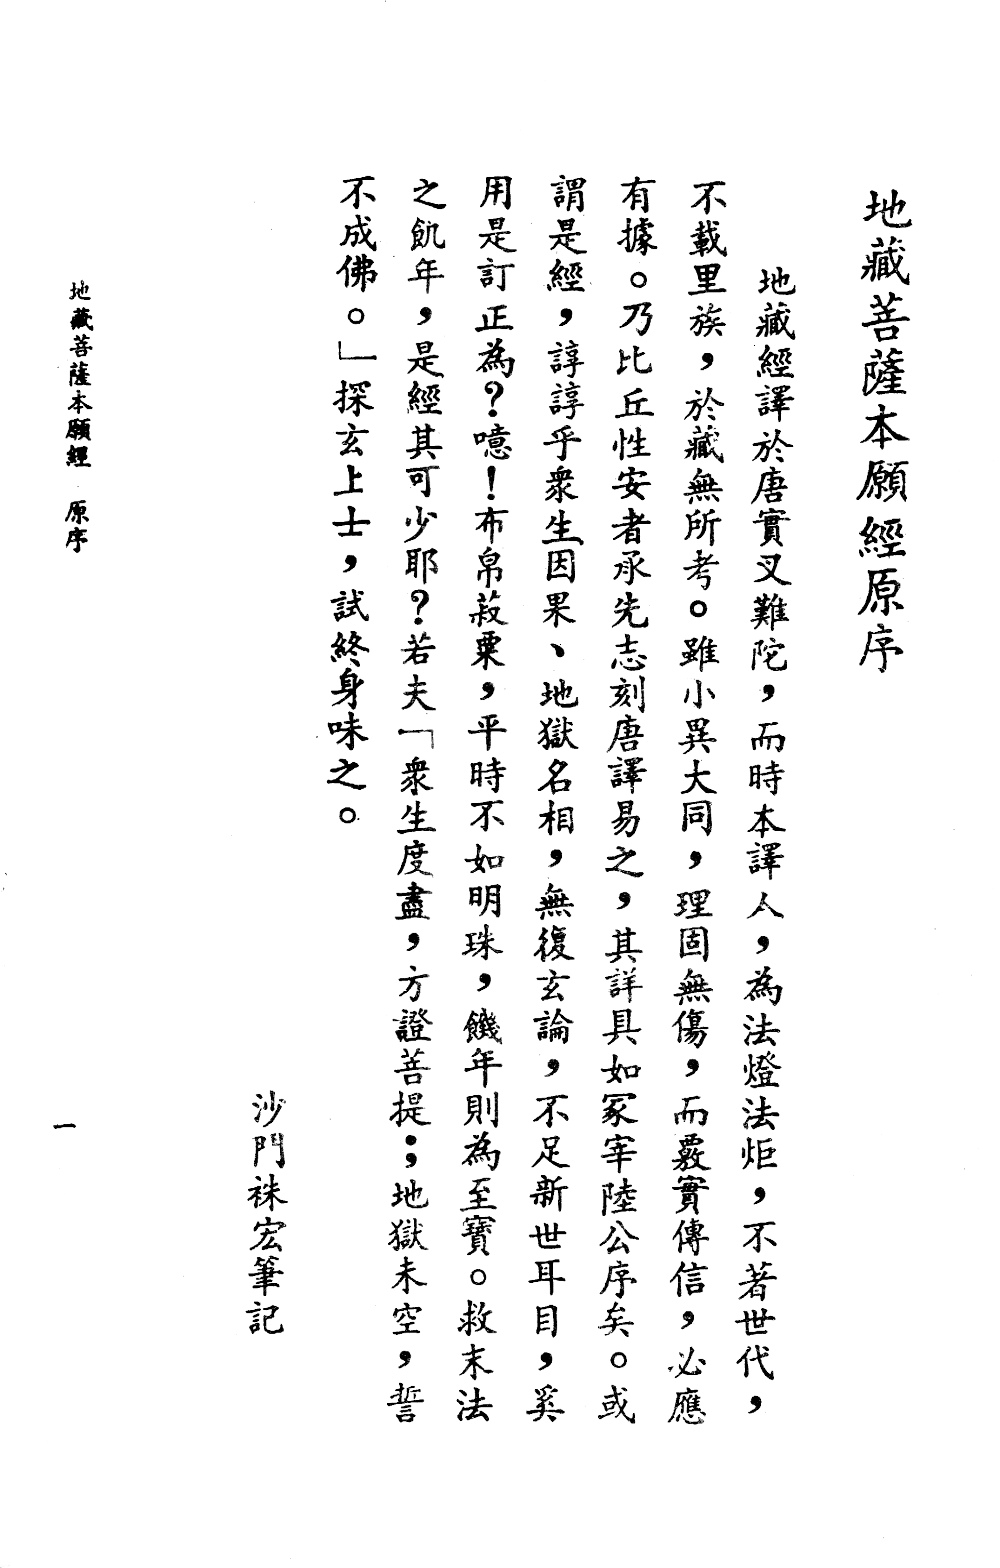 地藏菩薩本願經原序
地藏經譯於唐實叉難陀，而時本譯人，為法燈法炬，不著世代，
不載里族，於藏無所考。雖小異大同，理固無傷，而覈實傳信，必應
有據。乃比丘性安者承先志刻唐譯易之，其詳具如冢宰陸公序矣。或
謂是經，諄諄乎衆生因果、地獄名相，無復玄論，不足新世耳目，奚
用是訂正為？噫！布帛菽粟，平時不如明珠，饑年則為至寶。救末法
之飢年，是經其可少耶？若夫「衆生度盡，方證菩提；地獄未空，誓
不成佛。」探玄上士，試終身味之。
沙門袾宏筆記
地藏菩薩本願經 原序
一